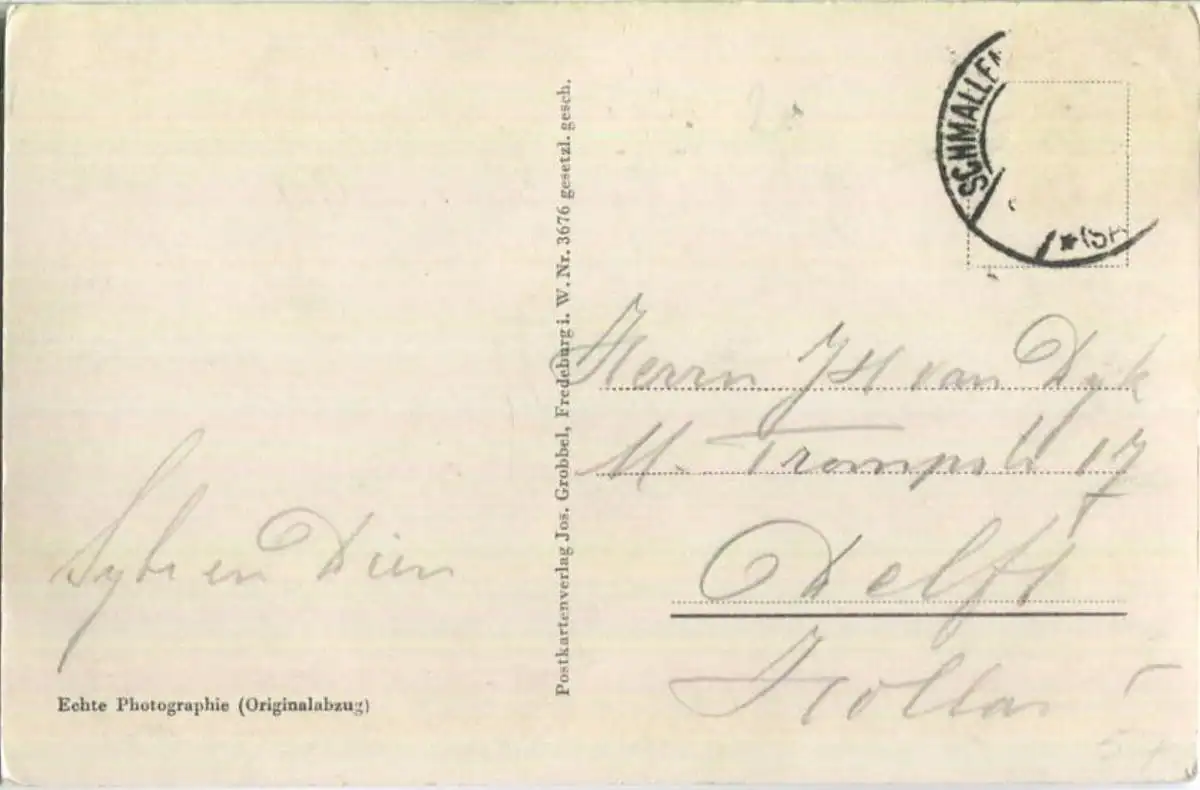 SCHMALLEN
*(SA
Postkartenverlag Jos. Grobbel, Fredeburg i. W. Nr. 3676 gesetzl. gesch.
Herrn JH van Dyk
M. Trompstr 17
Delft
Holland
Sybe en Dien
Echte Photographie (Originalabzug)